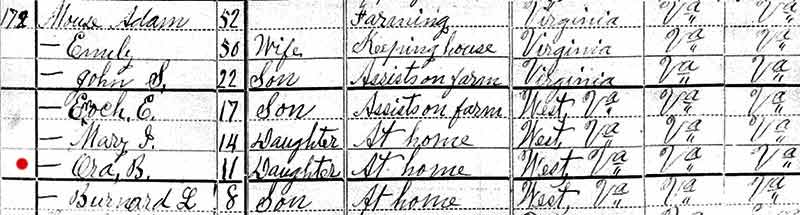 172 Mouse Adam 52 Farming Virginia Va Va
— Emily 50 Wife Keeping house Virginia Va Va
— John S. 22 Son Assists on farm Virginia Va Va
— E. 17 Son Assists on farm West Va Va Va
— Mary J. 14 Daughter At home West Va Va Va
— Ora B. 11 Daughter At home West Va Va Va
— Burnard L 8 Son At home West Va Va Va